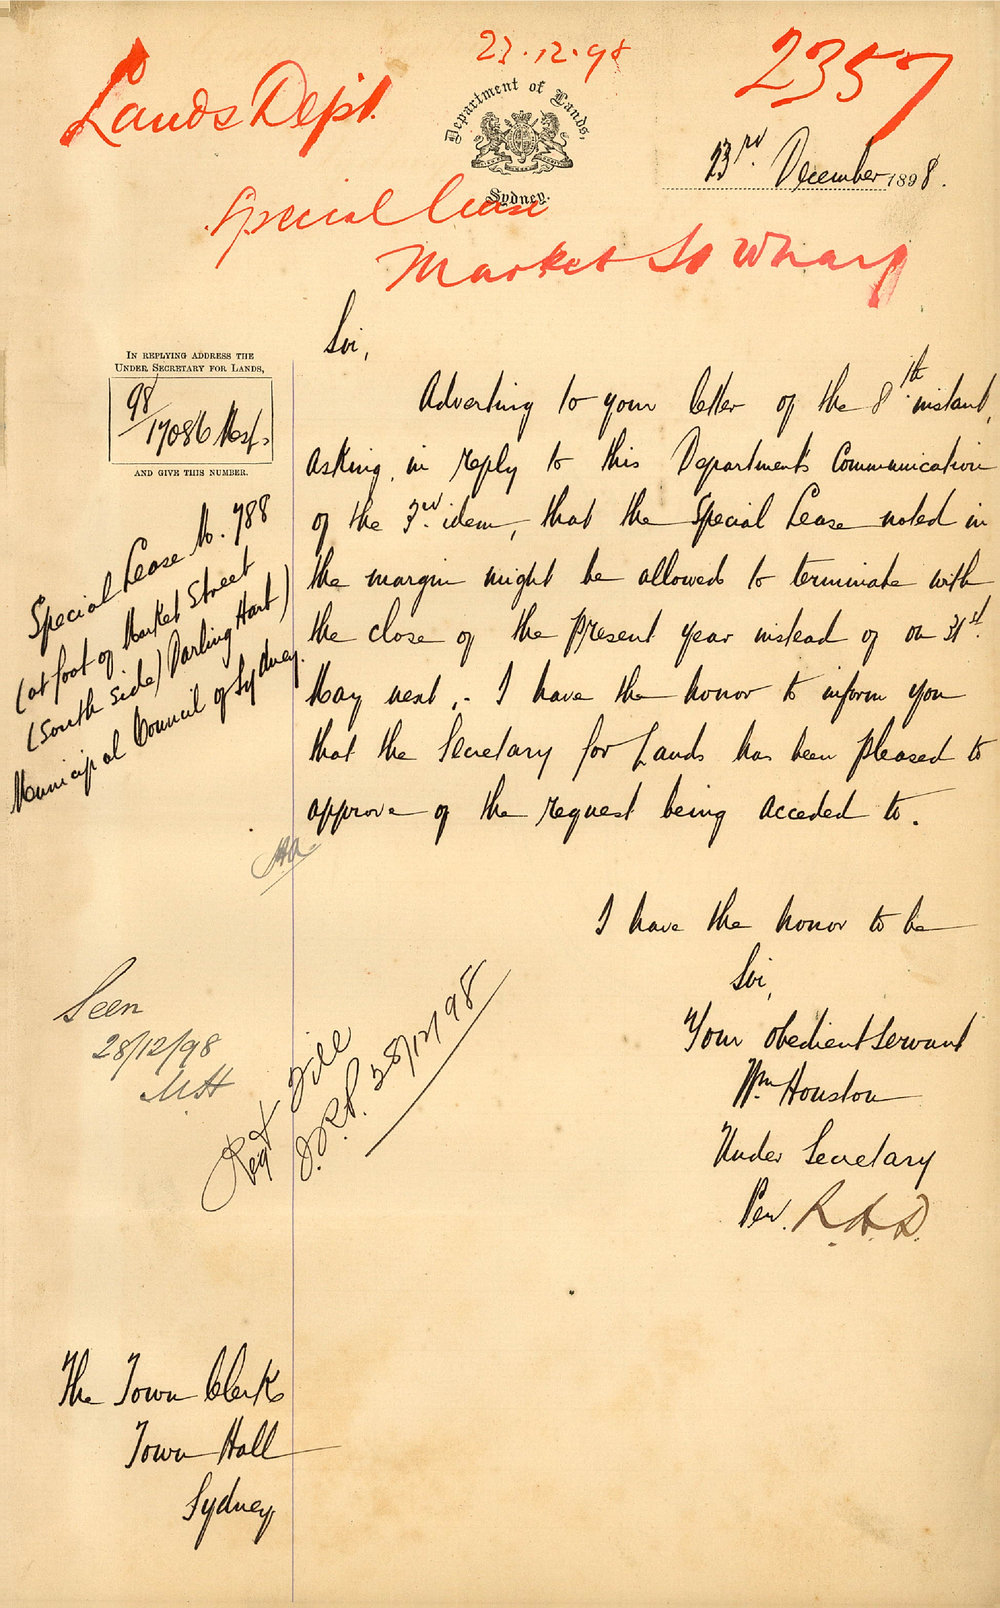 23.12.98
Lands Dept.
2357
Department of Lands,
Sydney.
23rd December 1898.
Special Lease
Market St Wharf
IN REPLYING ADDRESS THE
UNDER SECRETARY FOR LANDS,
98/17086 Mest.
AND GIVE THIS NUMBER.
Special Lease No. 788
(at foot of Market Street
(South Side) Darling Harb)
Municipal Council of Sydney.
Sir,
Adverting to your letter of the 8th instant,
asking, in reply to this Department's Communication
of the 3rd idem, that the Special Lease noted in
the margin might be allowed to terminate with
the close of the present year instead of on 31st
May next,- I have the honor to inform you
that the Secretary for Lands has been pleased to
approve of the request being acceded to.
I have the honor to be
Sir,
Your obedient Servant
Wm Houston
Under Secretary
Per. R.A.D.
Seen
28/12/98
Regr File
28/12/98
The Town Clerk
Town Hall
Sydney